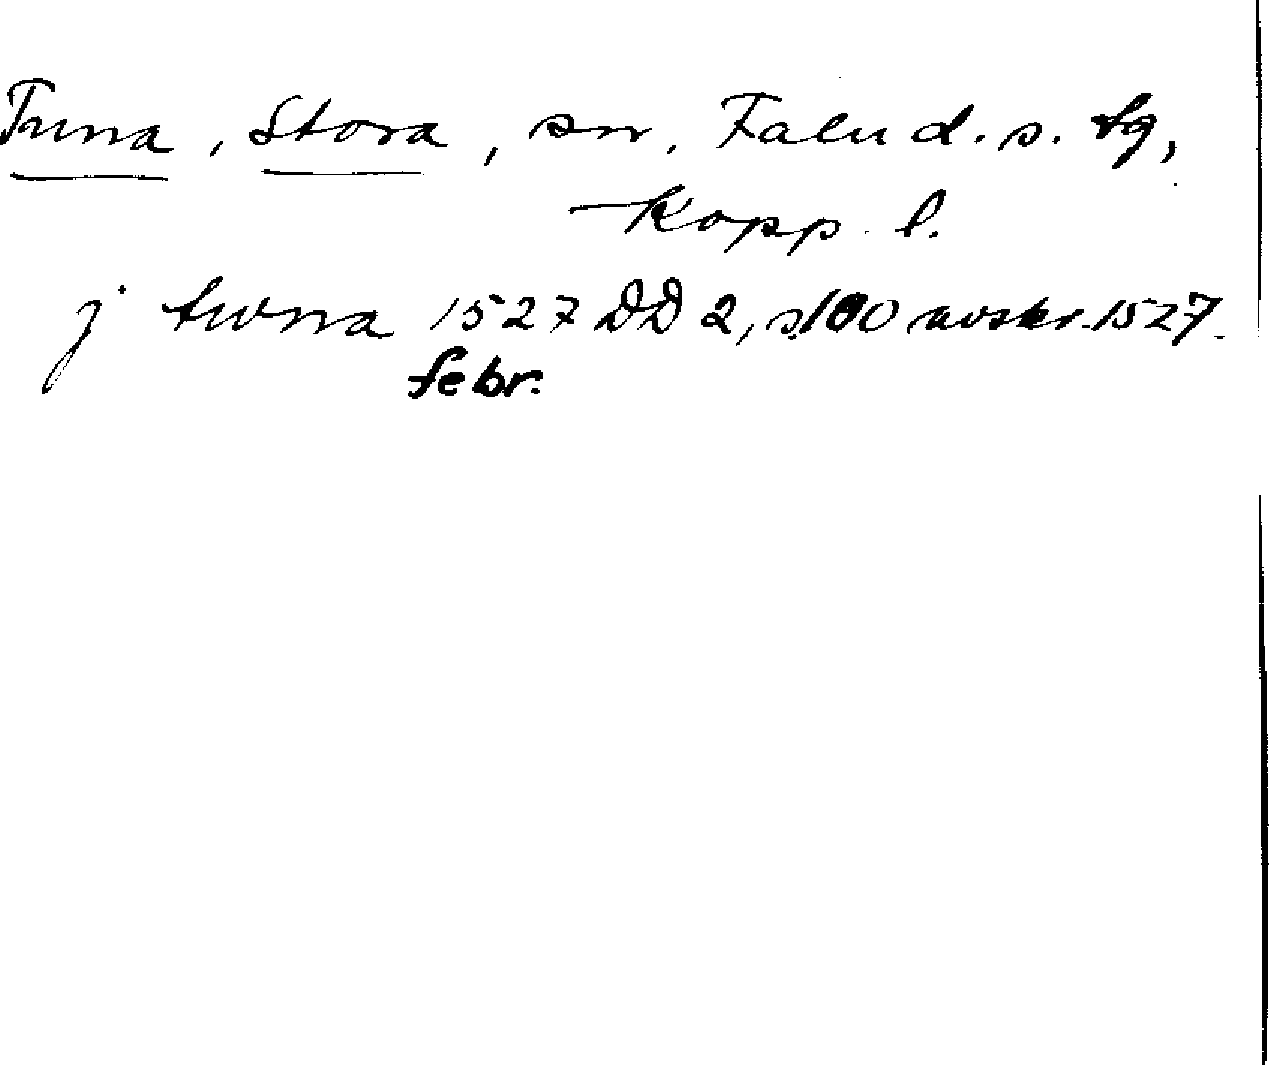 Tuna, Stora, sn, Falu d.s. tg,
Kopp. l.
j twna 1527 DD 2, s.100 avskr. 1527
febr.